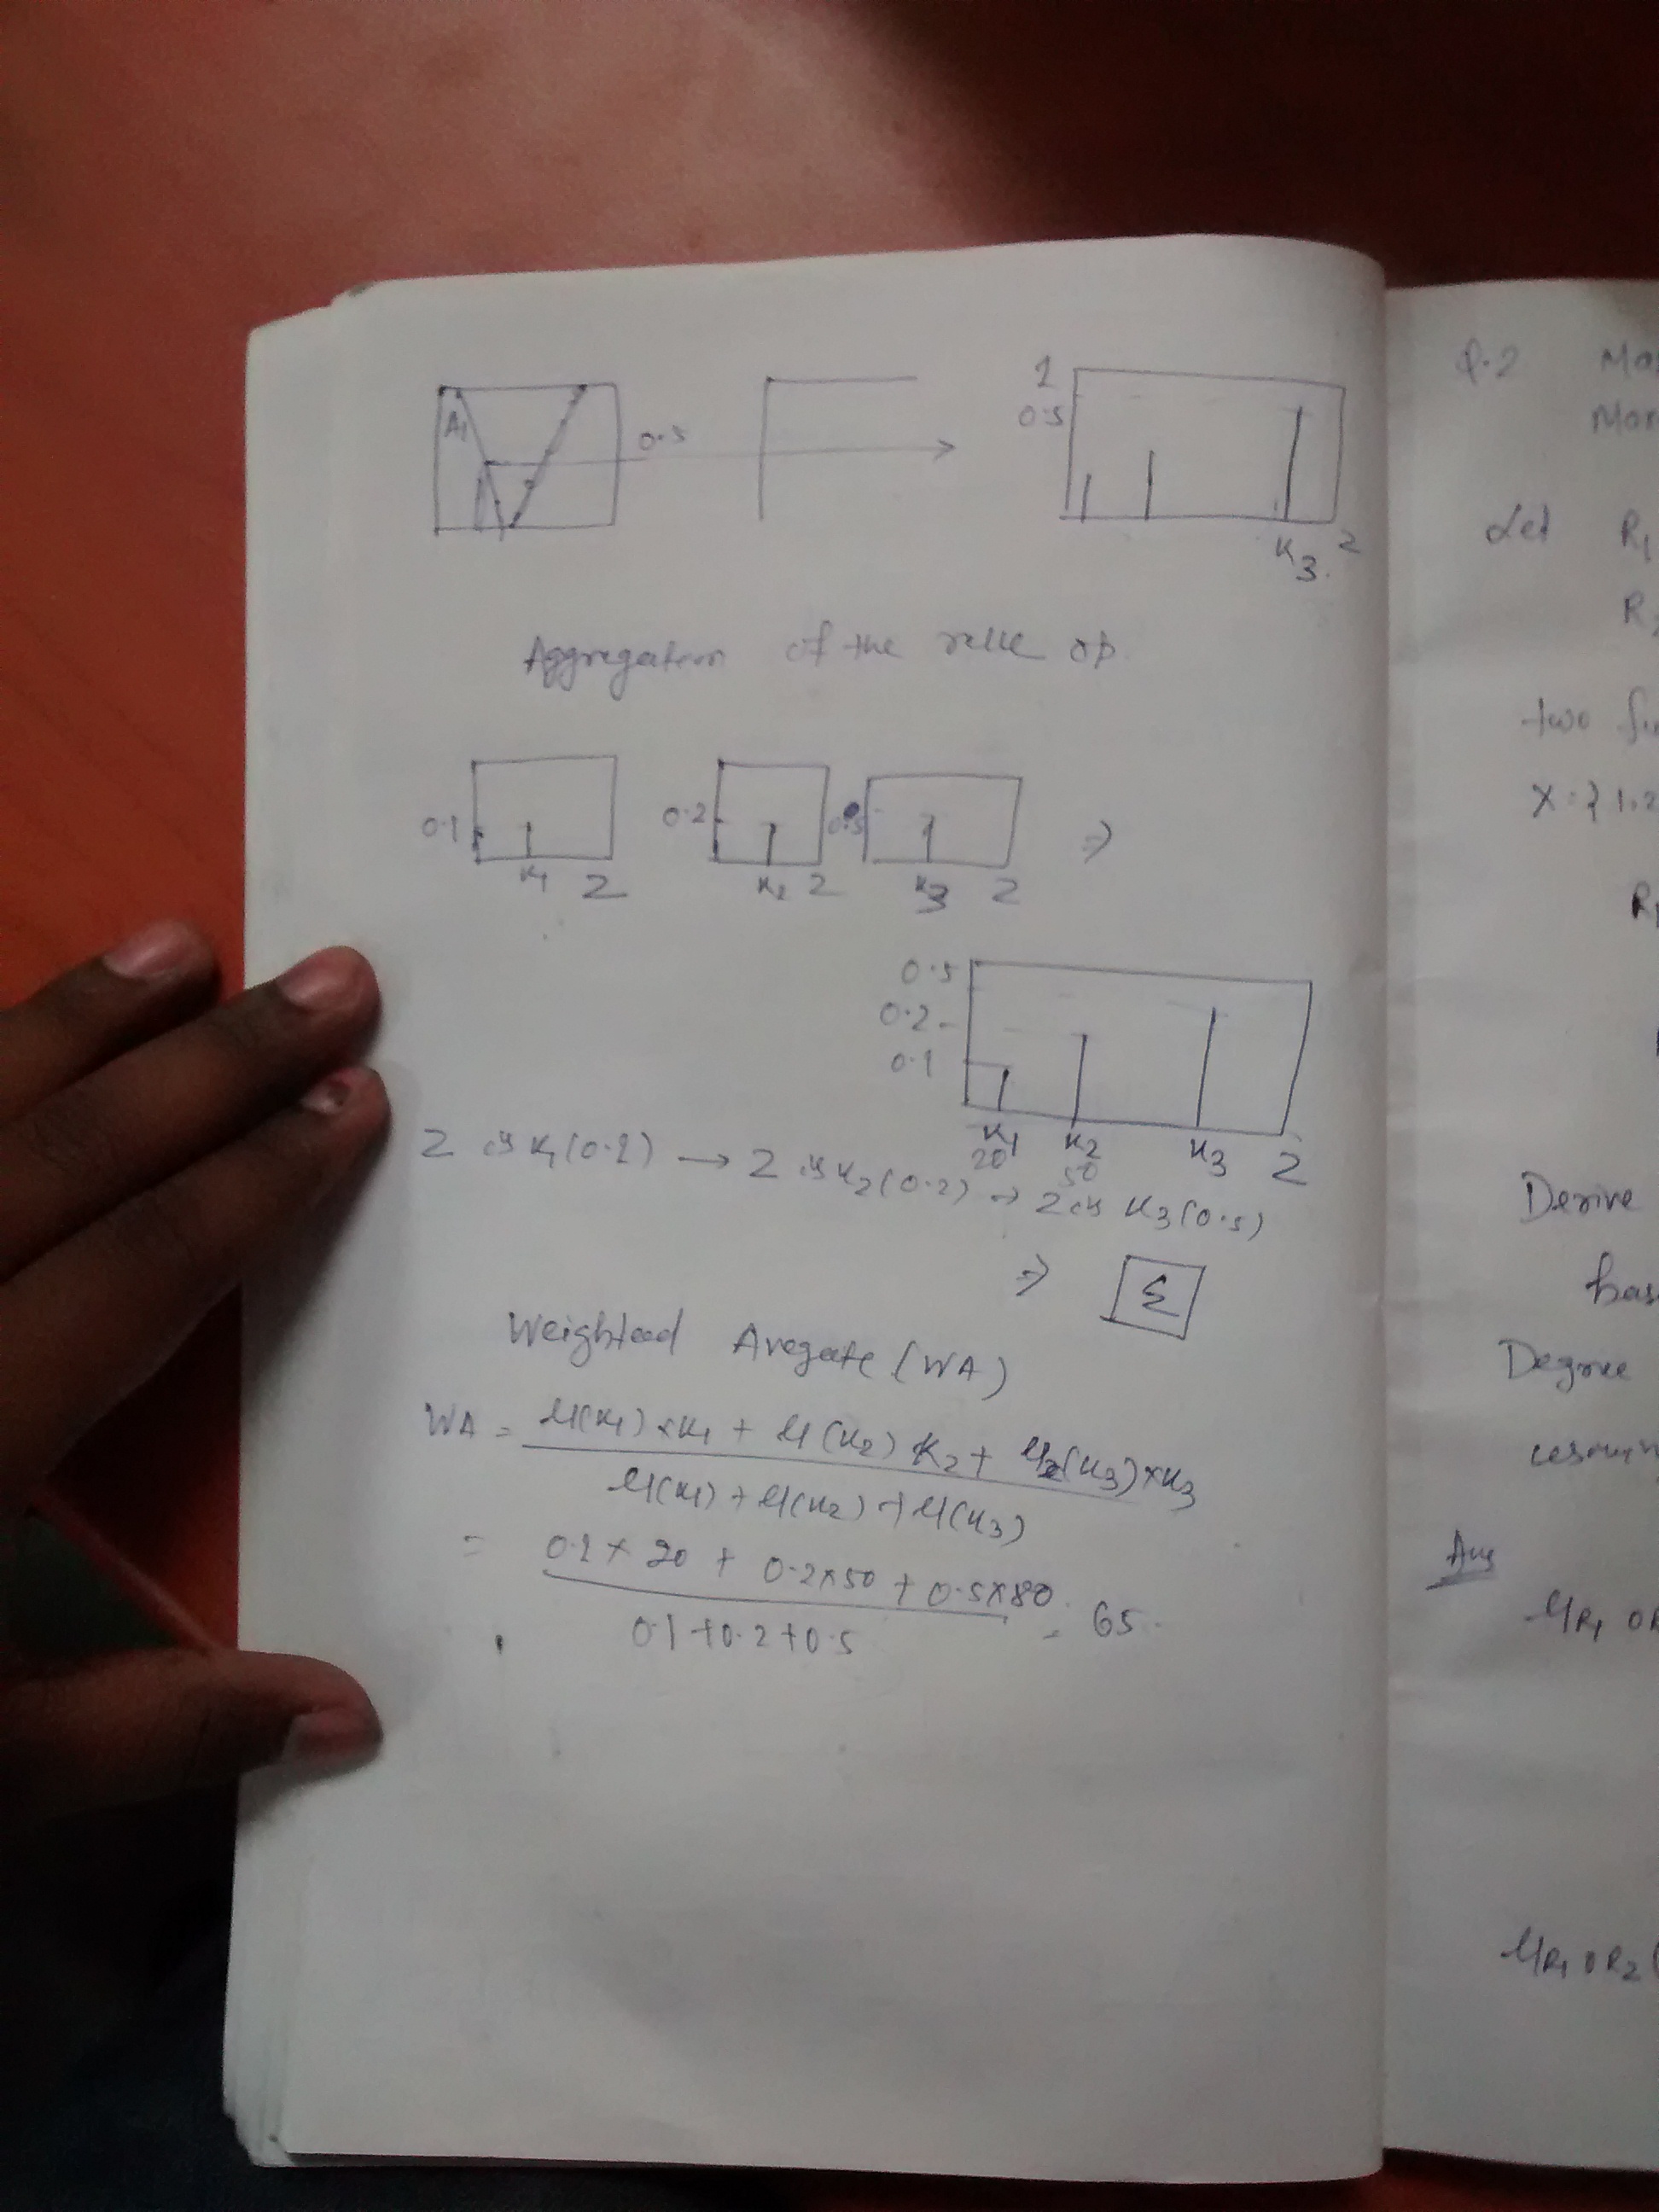 1
0.5
A1
0.5
K3 Z
Aggregation of the rule op
0.1
0.2
0.5
⇒
K1 Z
K2 Z
K3 Z
0.5
0.2
0.1
K1 K2 K3 Z
20 50
Z is K1 (0.1) → Z is K2 (0.2) → Z is K3 (0.5)
⇒ Σ
Weighted Avegate (WA)
WA = μ(K1) × K1 + μ(K2) K2 + μ(K3) × K3
μ(K1) + μ(K2) + μ(K3)
= 0.1 × 20 + 0.2×50 + 0.5×80
0.1 + 0.2 + 0.5 = 65
Q.2
Let R1
two
X = { 1.2
Derive
Degree
Ans
μR1 o
μR1 o R2 (